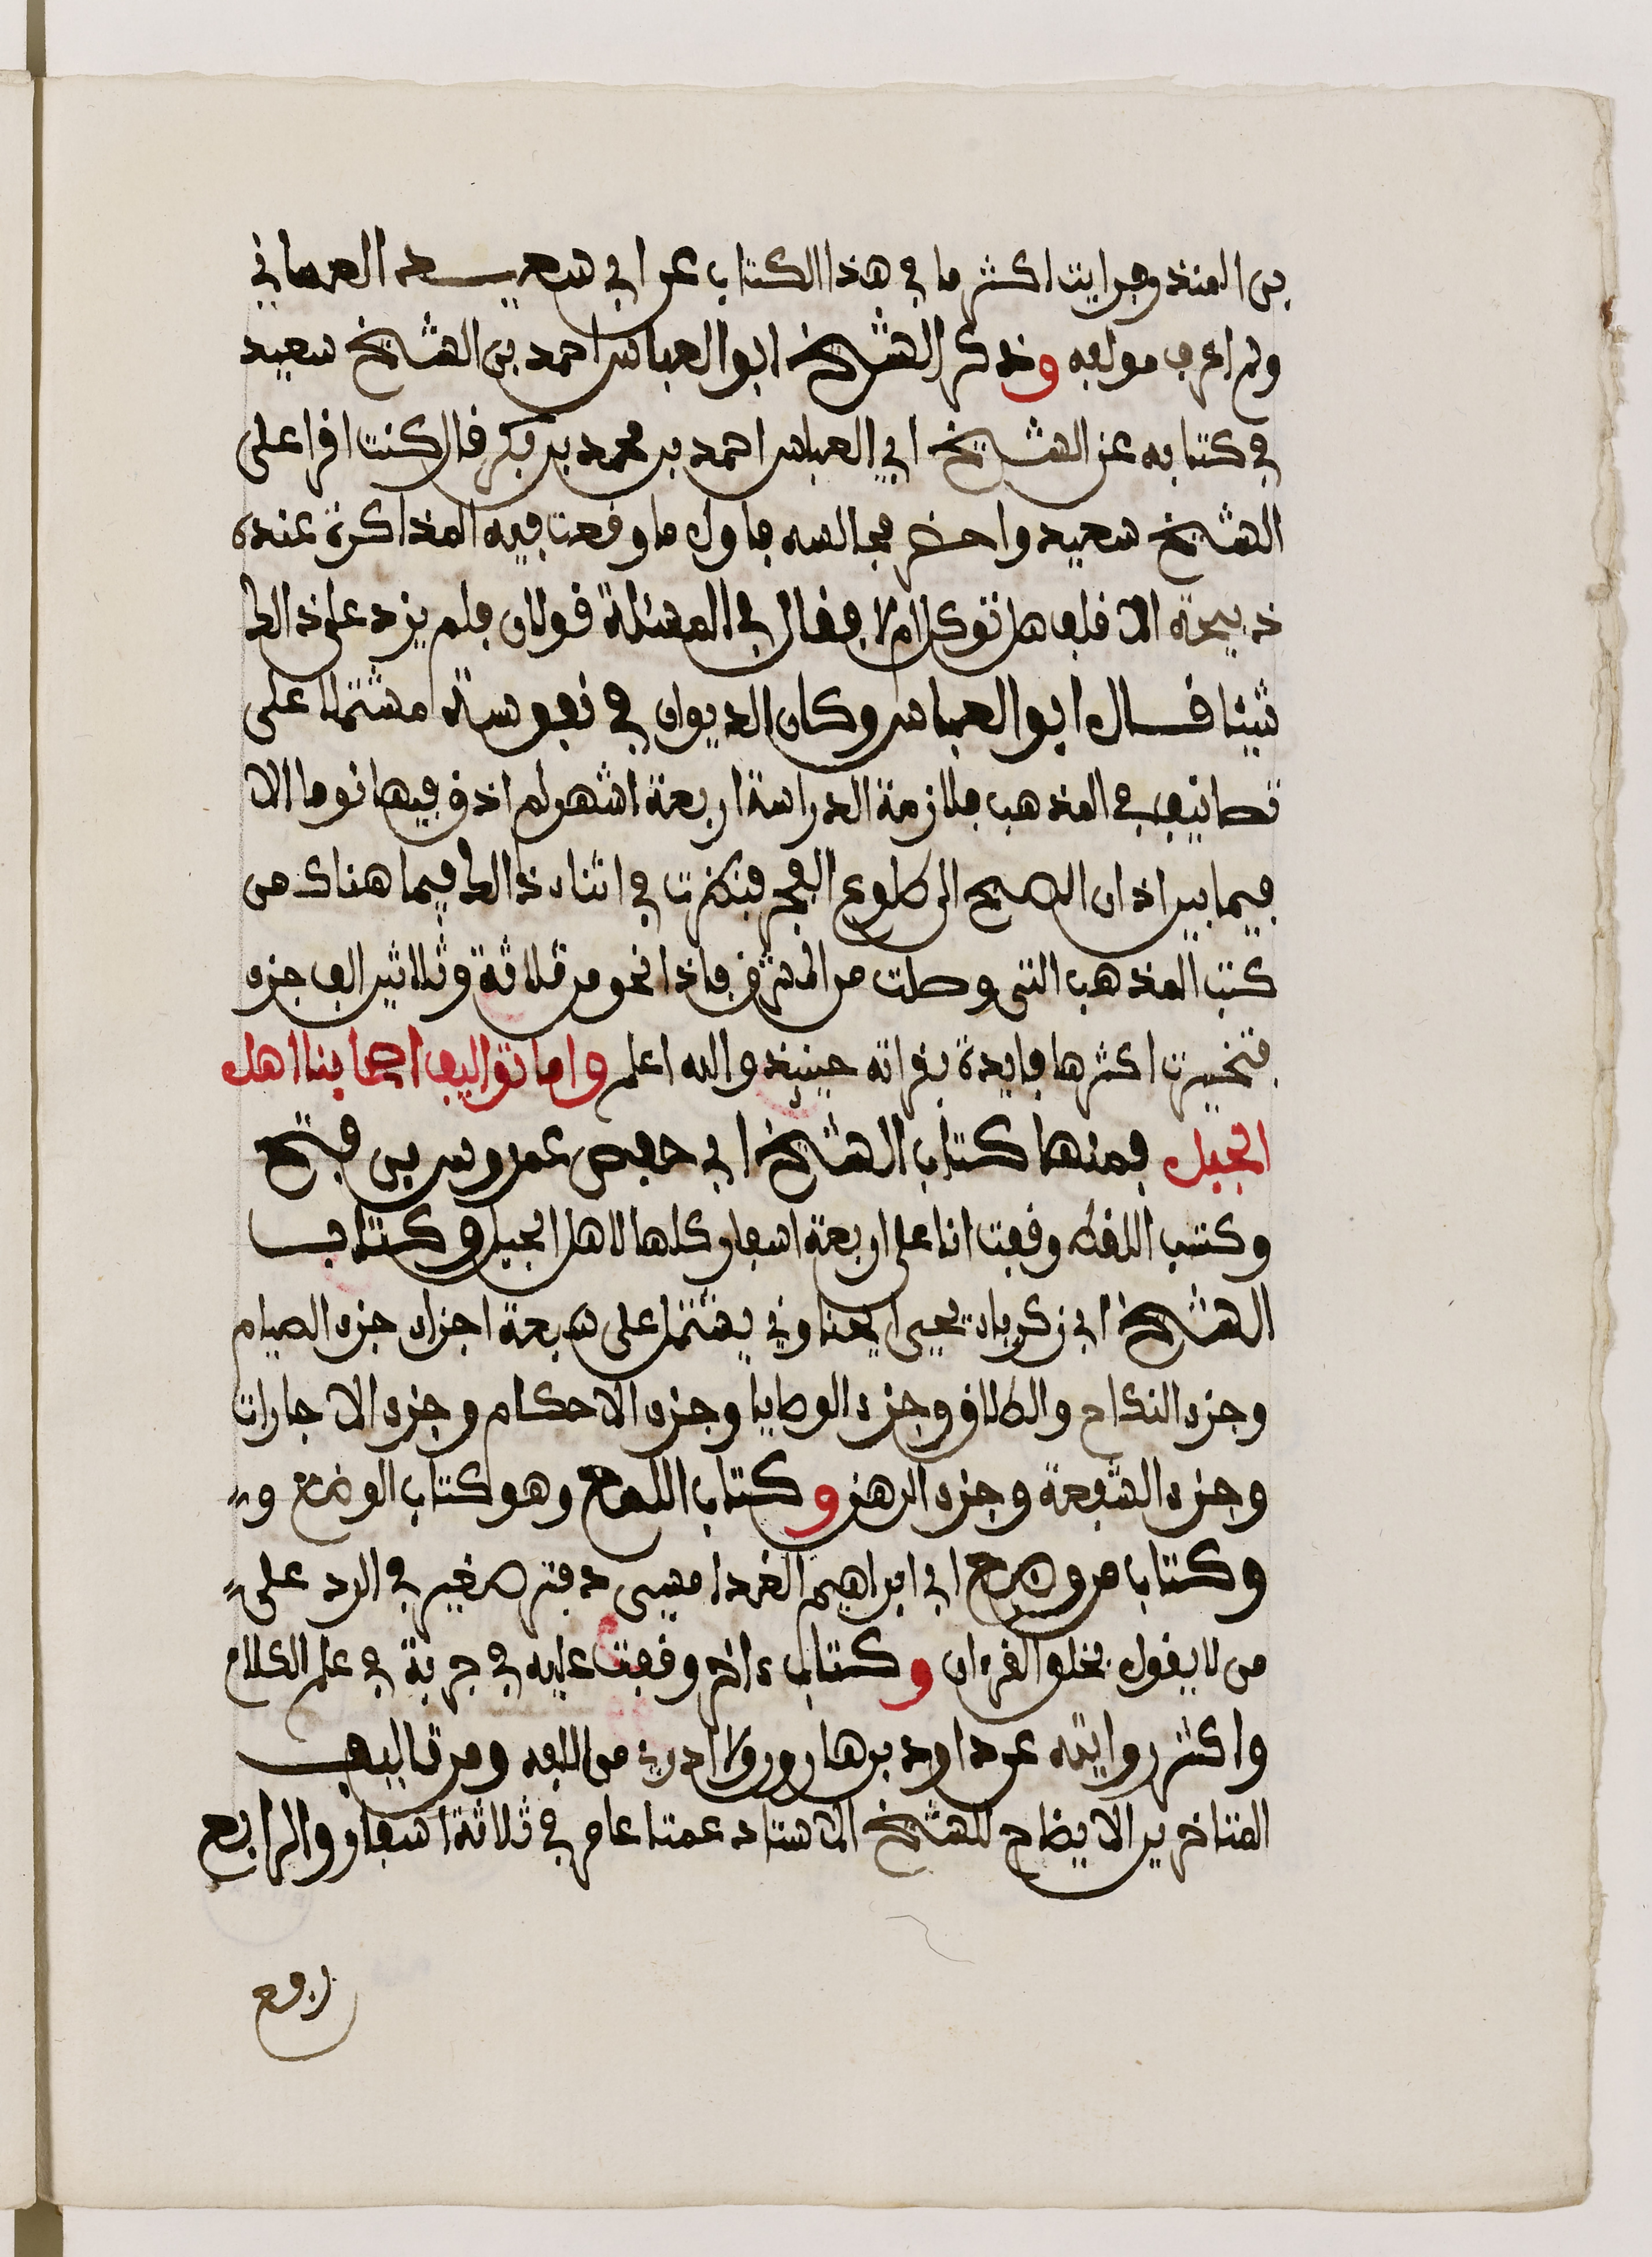 بن المنذر فرايت اكثر ما في هذا الكتاب عن ابي سعيد العماني
ولم اعرف مولفه وذكر الشيخ ابو العباس احمد بن الشيخ سعيد
في كتابه عن الشيخ ابي العباس احمد بن محمد بن بكر قال كنت اقرا على
الشيخ سعيد واحضر مجالسه فاول ما وقعت فيه المذاكرة عنده
ذبيحة الاقلف هل توكل ام لا فقال في المسئلة قولان فلم يزد على ذالك
شيئا قال ابو العباس وكان الديوان في نفوسة مشتملا على
تصانيف في المذهب فلازمة الدراسة اربعة اشهر لم اذق فيها نوما الا
فيما بين اذان الصبح الى طلوع الفجر فنظرت في اثناء ذالك فيما هناك من
كتب المذهب التي وصلت من المشرق فاذا نحو من ثلاثة وثلاثين الف جزء
فتخيرت اكثرها فايدة بقراته حينيذ والله اعلم واما تواليف اصحابنا اهل
الجبل فمنها كتاب الشيخ ابي حفص عمروس بن فتح
وكتب اللقط وقفت انا على اربعة اسفار كلها لاهل الجبل وكتاب
الشيخ ابي زكرياء يحيى الجناوني يشتمل على سبعة اجزاء جزء الصيام
وجزء النكاح والطلاق وجزء الوصايا وجزء الاحكام وجزء الاجارات
وجزء الشفعة وجزء الرهن وكتاب اللمع وهو كتاب الوضع و
وكتاب مروضح ابي ابراهيم الغدامسي دفتر صغير في الرد على
من لا يقول بخلق القرءان وكتاب ءاخر وقفت عليه في جربة في علم الكلام
واكثر روايته عن داود بن هارون ولا ادري من الفه ومن تاليف
المتاخرين الايضاح للشيخ الاستاد عمنا عامر في ثلاثة اسفار والرابع